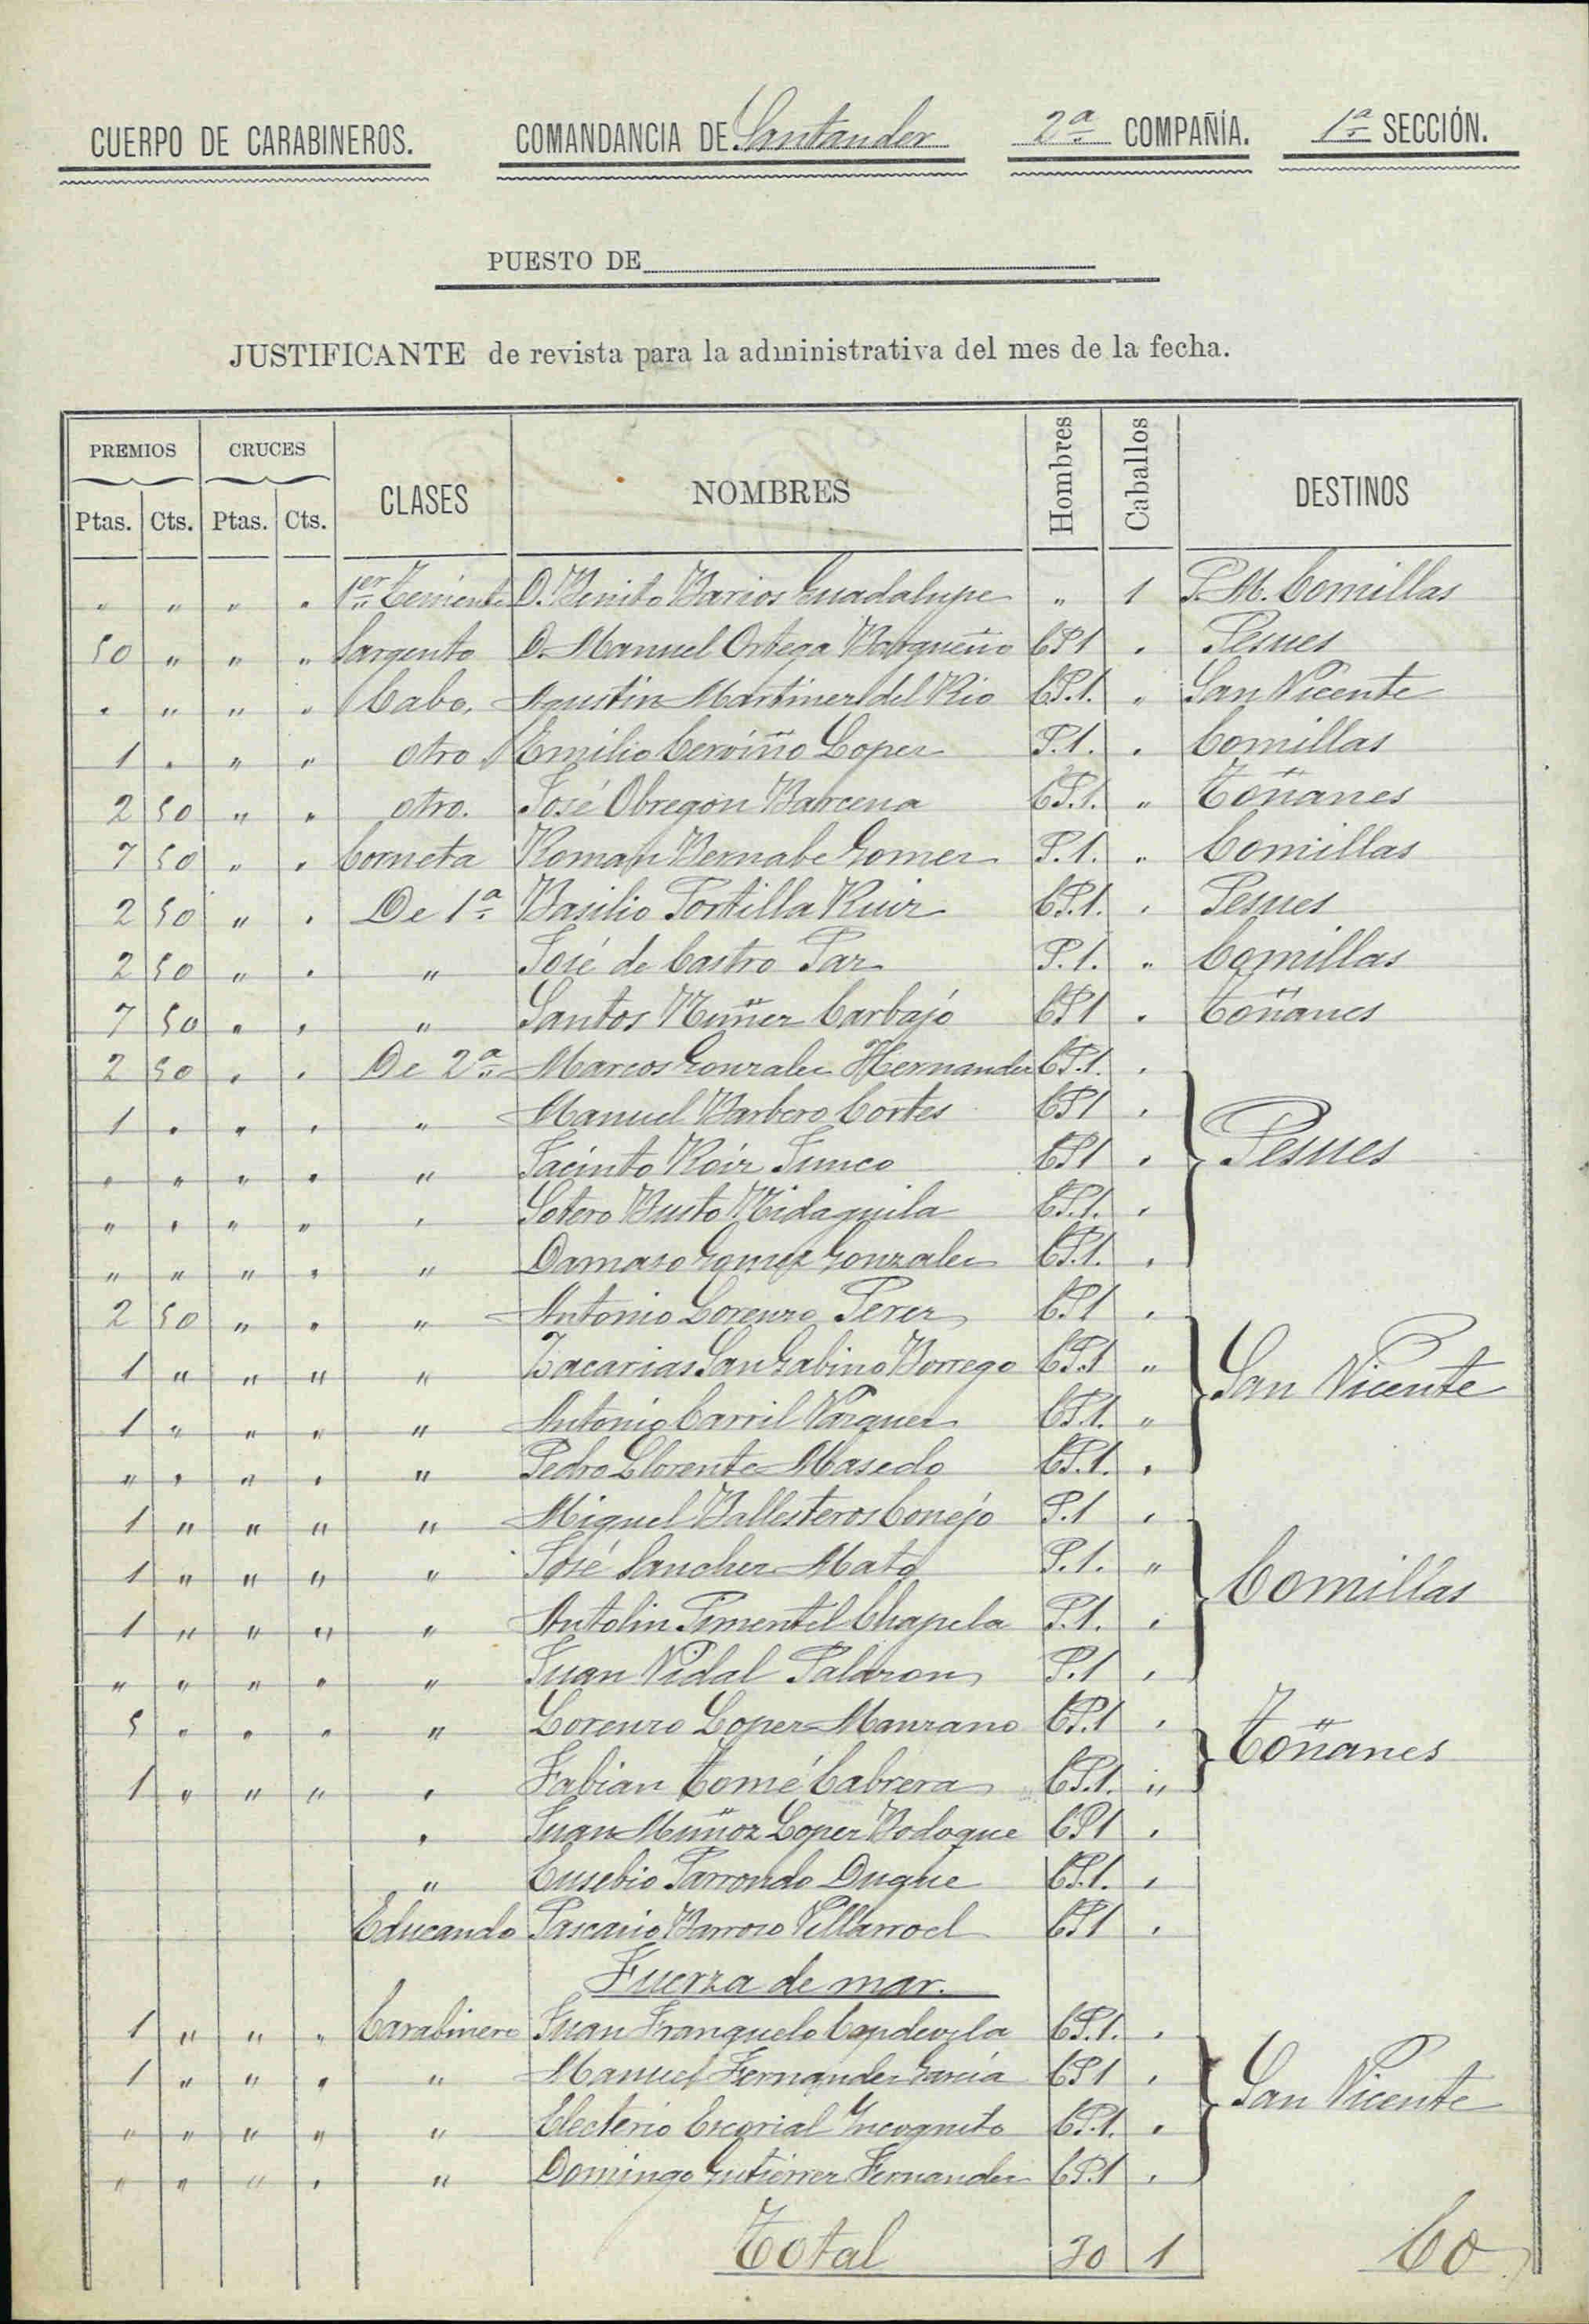 CUERPO DE CARABINEROS. COMANDANCIA DE Santander 2ª COMPAÑÍA. 1ª SECCIÓN.
PUESTO DE
JUSTIFICANTE de revista para la administrativa del mes de la fecha.
PREMIOS CRUCES CLASES NOMBRES Hombres Caballos DESTINOS
Ptas. Cts. Ptas. Cts.
" " " " 1er Teniente D. Benito Barios Guadalupe " 1 P.M. Comillas
50 " " " Sargento D. Manuel Ortega Borqueño CP1 " Pesues
" " " " Cabo. Agustin Martinez del Rio CP.1. " San Vicente
1 " " " otro Emilio Cerviño Lopez P.1. " Comillas
2 50 " " otro. José Obregon Barcena CP.1. " Toñanes
7 50 " " Corneta Roman Bernabe Gomez P.1. " Comillas
2 50 " " De 1ª Basilio Portilla Ruiz CP.1. " Pesues
2 50 " " " José de Castro Paz P.1. " Comillas
7 50 " " " Santos Nuñez Carbajo CP1 " Toñanes
2 50 " " De 2ª Marcos Gonzalez Hernandez CP.1. "
1 " " " " Manuel Barbero Cortes CP1 "
" " " " " Jacinto Roiz Junco CP1 " Pesues
" " " " " Sotero Busto Midaguila CP.1. "
" " " " " Damaso Gomez Gonzalez CP.1. "
2 50 " " " Antonio Lorenzo Perez CP1 "
1 " " " " Zacarias San Gabino Borrego CP.1 " San Vicente
1 " " " " Antonio Carril Vazquez CP.1. "
" " " " " Pedro Llorente Masedo CP.1. "
1 " " " " Miguel Ballesteros Conejo P.1 "
1 " " " " José Sanchez Mato P.1. " Comillas
1 " " " " Antolin Pimentel Chapela P.1. "
" " " " " Juan Vidal Palazon P.1 "
5 " " " " Lorenzo Lopez Manzano CP.1 " Toñanes
1 " " " " Fabian Tomé Cabrera CP.1. "
" Juan Muñoz Lopez Bodoque CP1 "
" Eusebio Parrondo Duque CP.1. "
Educando Pascasio Barroso Villarroel CP1 "
Fuerza de mar.
1 " " " Carabinero Juan Franquelo Capdevila CP.1. "
1 " " " " Manuel Fernandez Garcia CP1 " San Vicente
" " " " " Electerio Escorial Incognito CP.1. "
" " " " " Domingo Gutierrez Fernandez CP.1 "
Total 30 1 60